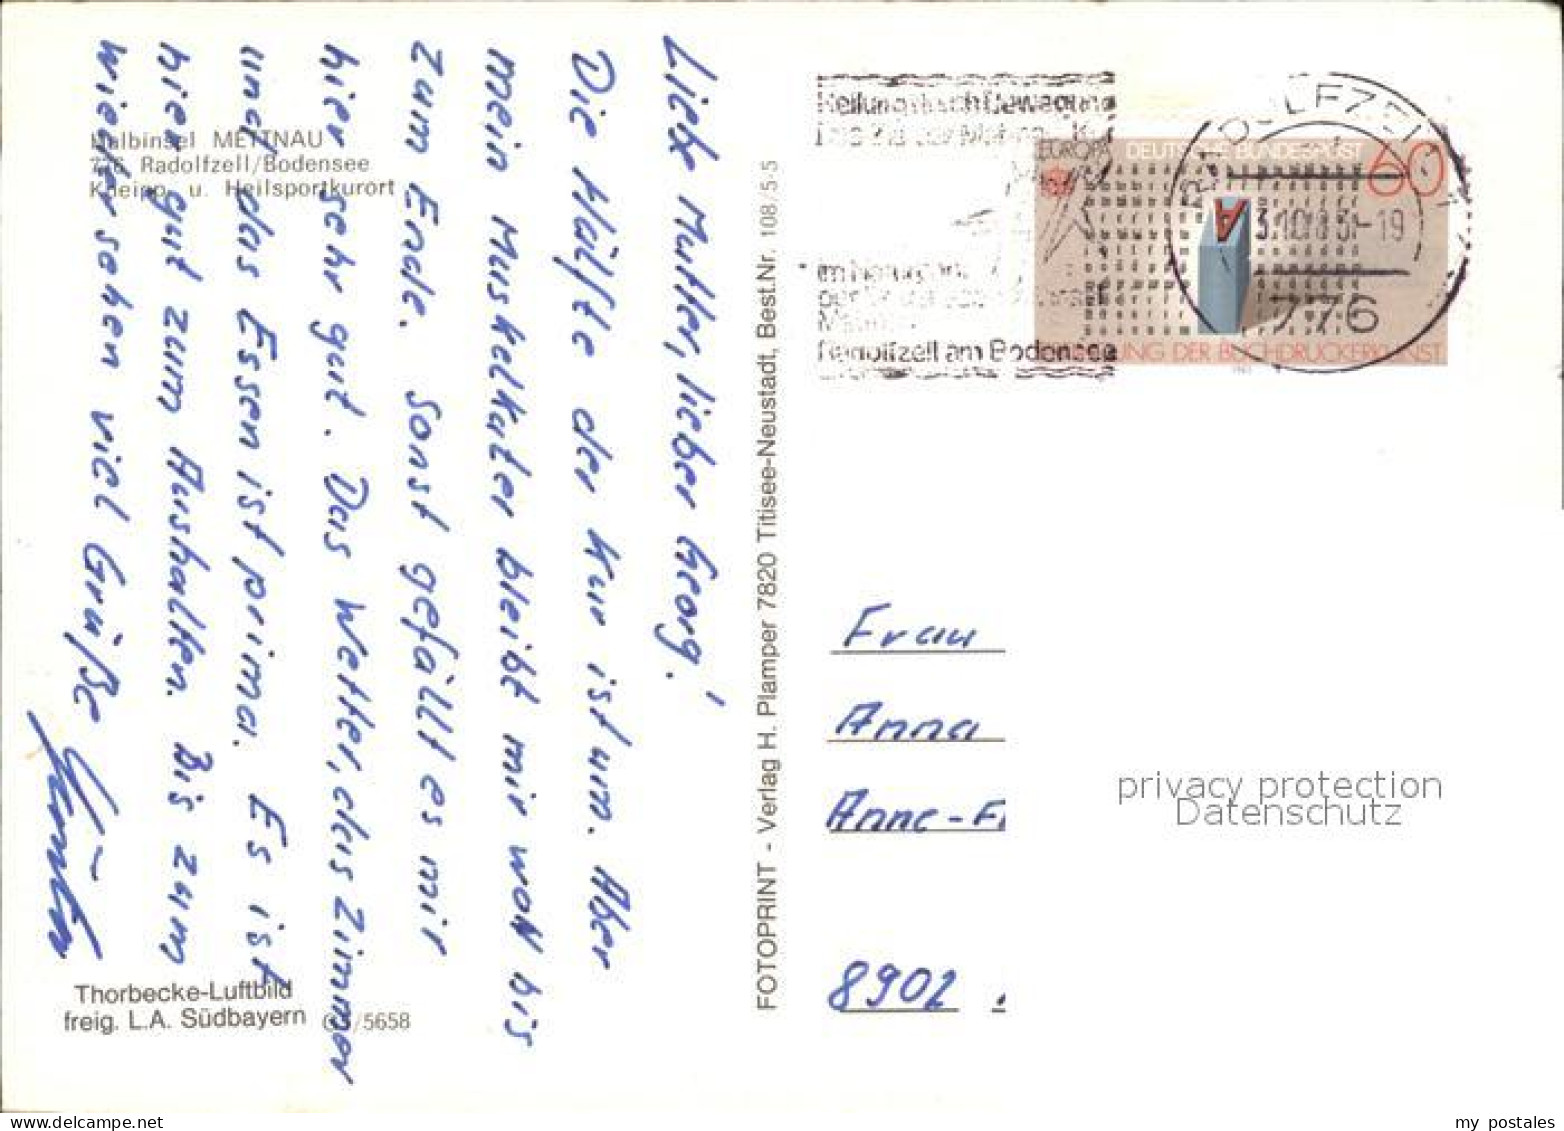 Liebe Mutter, lieber Georg!
Die Hälfte der Kur ist um. Aber
mein Muskelkater bleibt mir wohl bis
zum Ende. Sonst gefällt es mir
hier sehr gut. Das Wetter, das Zimmer
und das Essen ist prima. Es ist
hier gut zum Aushalten. Bis zum
Wiedersehen viel Grüße
Halbinsel METTNAU
776 Radolfzell/Bodensee
Kneipp u. Heilsportkurort
Thorbecke-Luftbild
freig. L.A. Südbayern
/5658
FOTOPRINT - Verlag H. Plamper 7820 Titisee-Neustadt, Best.Nr. 108/5-5
Radolfzell am Bodensee
EUROPA
DEUTSCHE BUNDESPOST
60
A
DER BUCHDRUCKERKUNST
RADOLFZELL
-19
776
Frau
Anna
Anne-F
8902
privacy protection
Datenschutz
my postales